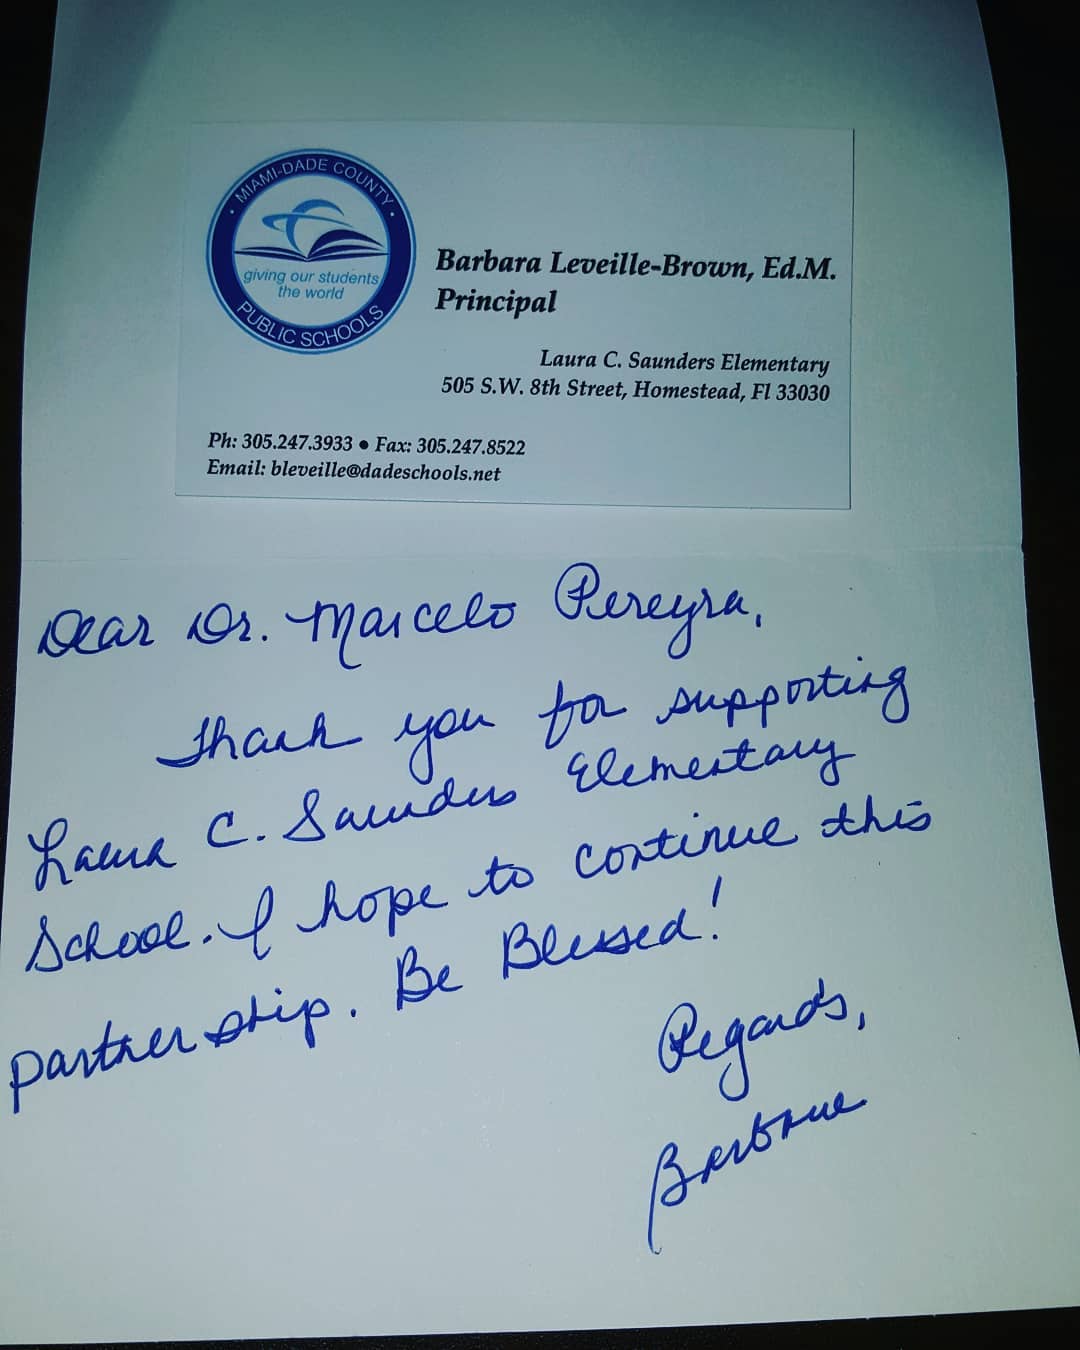 MIAMI-DADE COUNTY
giving our students
the world
PUBLIC SCHOOLS
Barbara Leveille-Brown, Ed.M.
Principal
Laura C. Saunders Elementary
505 S.W. 8th Street, Homestead, Fl 33030
Ph: 305.247.3933 ● Fax: 305.247.8522
Email: bleveille@dadeschools.net
Dear Dr. Marcelo Pereyra,
Thank you for supporting
Laura C. Saunders Elementary
School. I hope to continue this
partnership. Be Blessed!
Regards,